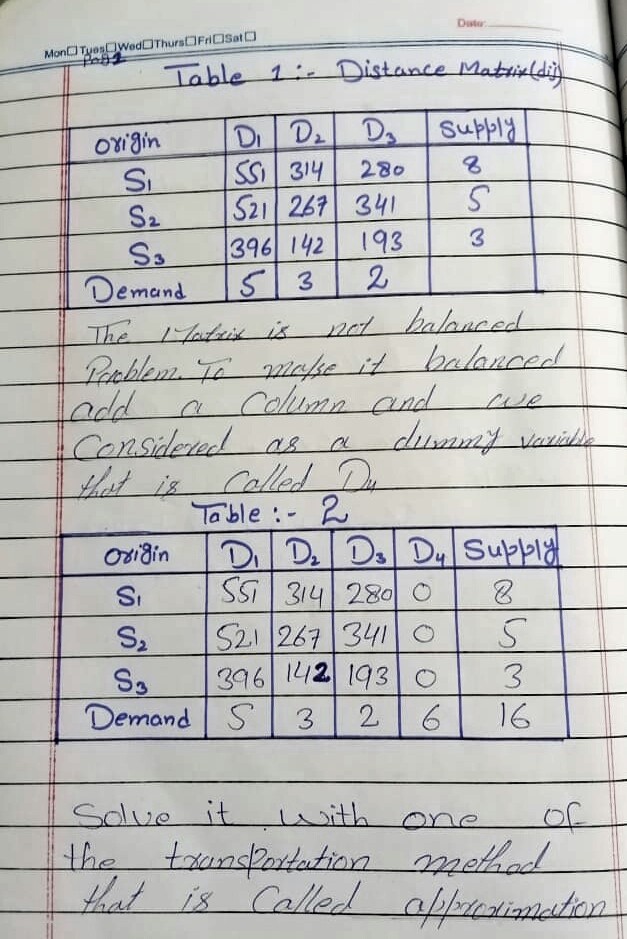 Date:
Mon Tues Wed Thurs Fri Sat
Table 1:- Distance Matrix (dij)
Origin D1 D2 D3 Supply
S1 551 314 280 8
S2 521 267 341 5
S3 396 142 193 3
Demand 5 3 2
The Matrix is not balanced
Problem. To make it balanced
add a Column and we
Considered as a dummy variable
that is Called D4
Table :- 2
Origin D1 D2 D3 D4 Supply
S1 551 314 280 0 8
S2 521 267 341 0 5
S3 396 142 193 0 3
Demand 5 3 2 6 16
Solve it with one of
the transportation method
that is Called approximation